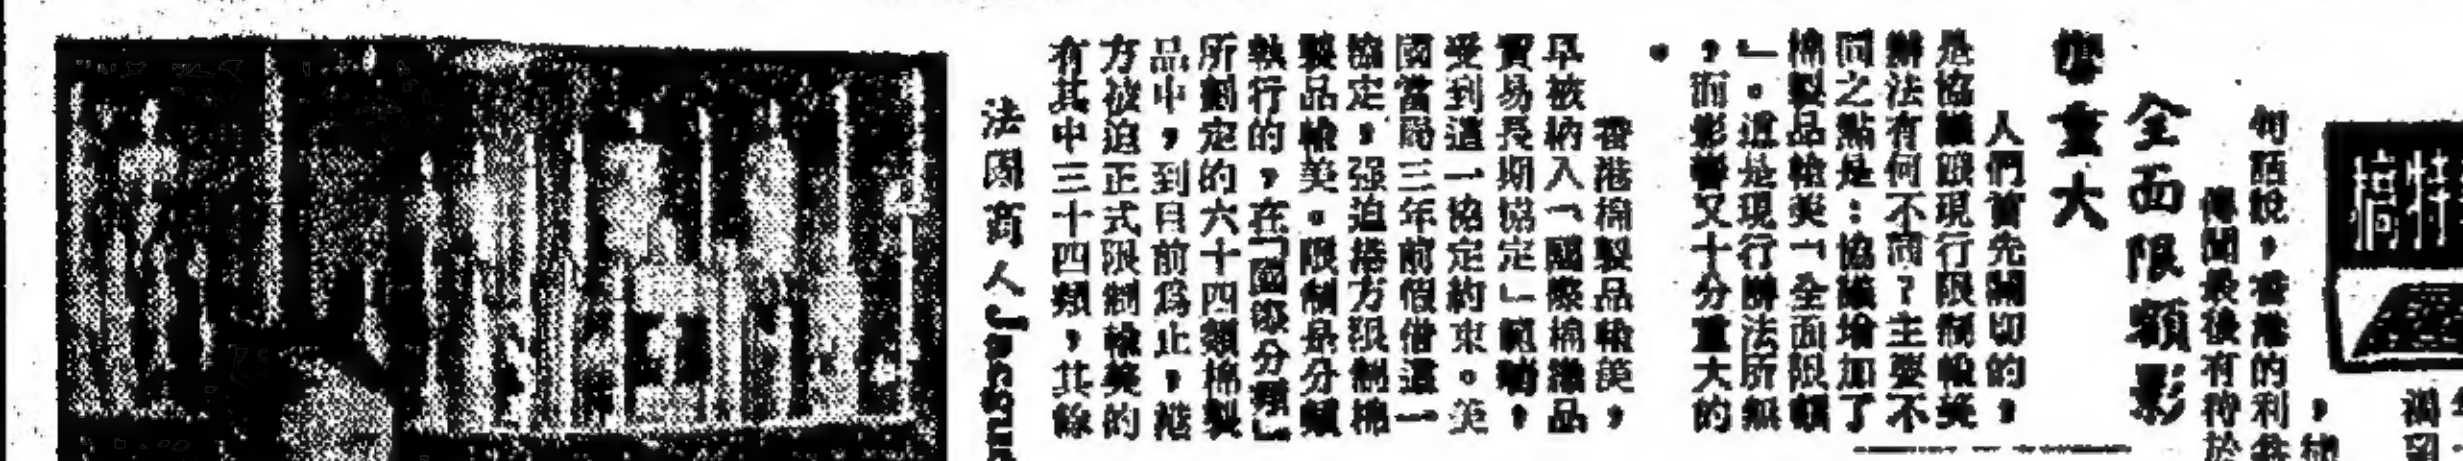 特稿
何話說，香港的利益
傳聞最後有待於
全面限額影
響重大
人們首先關切的，
是協議跟現行限制輸美
辦法有何不同？主要不
同之點是：協議增加了
棉製品輸美「全面限額
」。這是現行辦法所無
，而影響又十分重大的
。
香港棉製品輸美，
早被納入「國際棉織品
貿易長期協定」範疇，
受到這一協定約束。美
國當局三年前假借這一
協定，强迫港方限制棉
製品輸美。限制是分類
執行的，在「國際分類」
所劃定的六十四類棉製
品中，到目前爲止，港
方被迫正式限制輸美的
有其中三十四類，其餘
法國商人